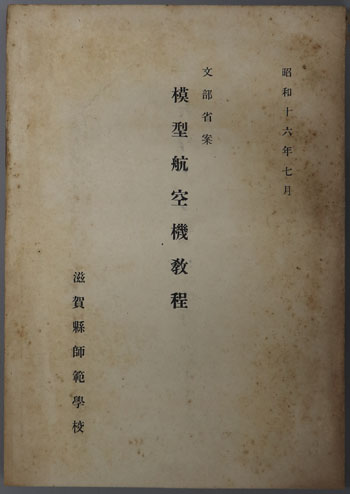 昭和十六年七月
文部省案
模型航空機教程
滋賀縣師範學校